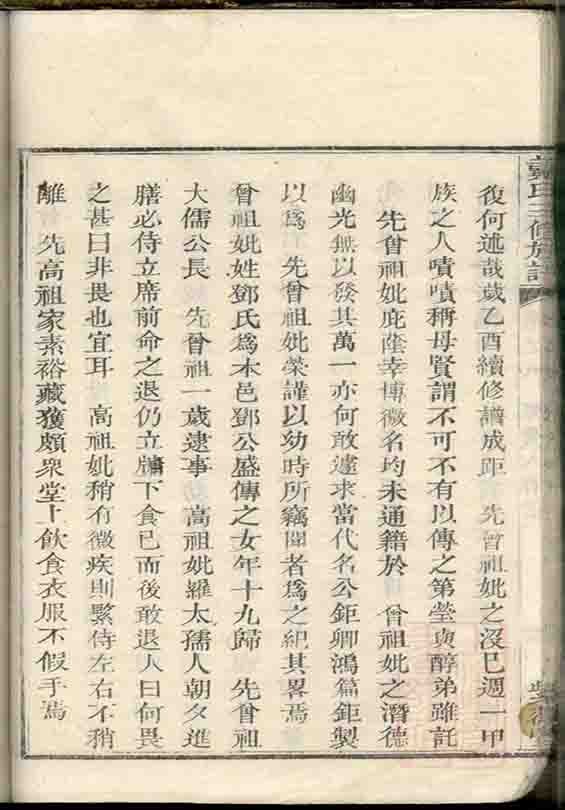 復何述哉歲乙酉續修譜成距　先曾祖妣之沒已週一甲
族之人嘖嘖稱母賢謂不可不有以傳之第瑩與醇弟雖託
先曾祖妣庇蔭幸博微名均未通籍於　曾祖妣之潛德
幽光無以發其萬一亦何敢遽求當代名公鉅卿鴻篇鉅製
以爲　先曾祖妣榮謹以幼時所竊聞者爲之紀其畧焉
曾祖妣姓鄧氏爲本邑鄧公盛傳之女年十九歸　先曾祖
大儒公長　先曾祖一歲逮事　高祖妣羅太孺人朝夕進
膳必侍立席前命之退仍立牖下食已而後敢退人曰何畏
之甚曰非畏也宜耳　高祖妣稍有微疾則繄侍左右不稍
離　先高祖家素裕藏獲頗衆堂上飲食衣服不假手焉
氏三修族譜